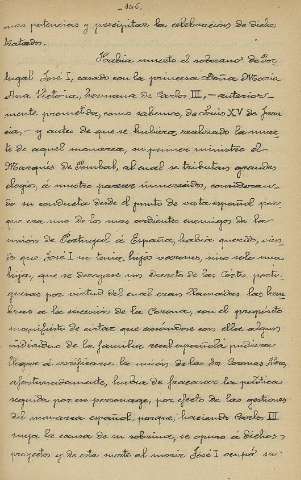 106.
mas potencias y precipitar la celebración de dicho
tratado.
Había muerto el soberano de Por
tugal José I, casado con la princesa Doña María
Ana Victoria, hermana de Carlos III, - anterior-
mente prometida, como sabemos, de Luis XV de Fran
cia, - y antes de que se hubiera realizado la muer
te de aquel monarca, su primer ministro el
Marqués de Pombal, al cual se tributan grandes
elogios, á nuestro parecer inmerecidos, consideran-
do su conducta desde el punto de vista español por
que era uno de los mas ardientes enemigos de la
unión de Portugal á España, había querido, vien
do que José I no tenía hijos varones, sino solo una
hija, que se derogase un decreto de las Cortes portu
guesas por virtud del cual eran llamadas las hem
bras á la sucesión de la Corona, con el propósito
manifiesto de evitar que casándose con ellas algun
individuo de la familia real española pudiera
llegar á verificarse la unión de las dos Coronas. Pero,
afortunadamente, hubo de fracasar la política
seguida por ese personaje, por efecto de las gestiones
del monarca español, porque, haciendo Carlos III
suya la causa de su sobrina, se opuso á dichos
proyectos y de esta suerte al morir José I ocupó su